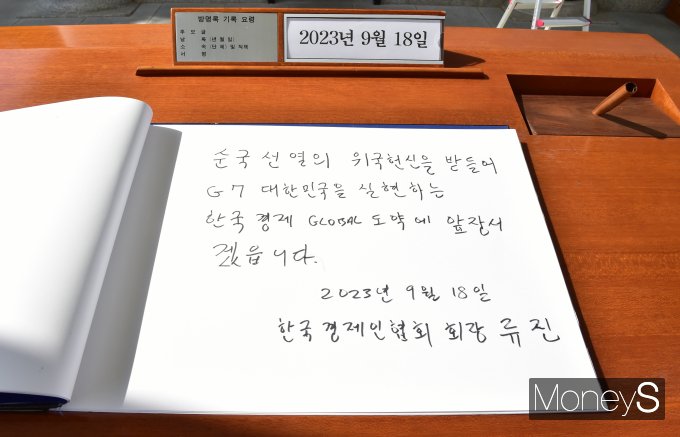 방명록 기록 요령
추 모 글
날 짜 (년 월 일)
소 속 (단 체) 및 직책
서 명
2023년 9월 18일
순국선열의 위국헌신을 받들어
G7 대한민국을 실현하는
한국경제 GLOBAL 도약에 앞장서
겠읍니다.
2023년 9월 18일
한국경제인협회 회장 류진
MoneyS